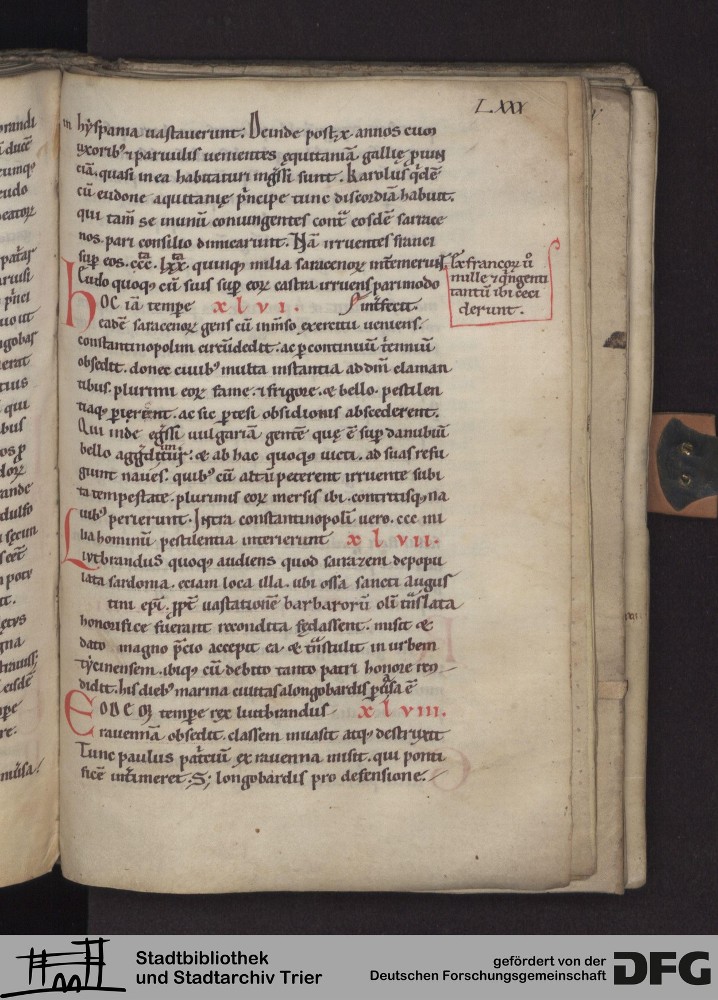 LXXX
in hyspania uastauerunt. Deinde post .x. annos cum
uxorib; ⁊ paruulis uenientes equitaniā gallię ꝓuin
ciā. quasi in ea habitaturi ingssi sunt. Karolus qͥdē
cū eudone aquitanię pͥncipe tunc discordiā habuit.
qui tam̄ se inunū coniungentes contͣ eosdē sarrace
nos. pari consilio dimicarunt. Nā irruentes franci
sup eos .ccc. lxx. quinq; milia saracenoꝝ intemerunt
de francoꝝ ū
mille ⁊ qͥngenti
tantū ibi ceci
derunt.
Eudo quoq; cū suis sup eoꝝ castra irruens parimodo
HOC iā tempe xlvi. intfecit.
cadē saracenoꝝ gens cū inmso exercitu ueniens.
constantinopolim circūdedit. ac ꝑ continuū tenniū
obsedit. donec ciuib; multa instantia ad dm̄ claman
tibus. plurimi eoꝝ fame. ⁊ frigore. & bello. pestilen
tiaq; perierent. ac sic ꝑtesi obsidionis abscederent.
Qui inde egssi uulgariā gentē quę ē sup danubiū
bello aggͣditur. & ab hac quoq; uicti. ad suas refu
giunt naues. quib; cū altū peterent irruente subi
ta tempestate. plurimis eoꝝ mersis ibi. contritisq; na
uib; perierunt. Intra constantinopolī uero. ccc mi
lia hominū pestilentia interierunt xlvii.
Liutbrandus quoq; audiens quod sarrazeni depopu
lata sardonia. eciam loca illa. ubi ossa sancti augus
tini epī. ꝓpt uastationē barbarorū olī tͣnslata
honorifice fuerant recondita fędassent. misit &
dato magno pͥcio accepit ea & tͣnstulit in urbem
tycinensem. ibiq; cū debito tanto patri honore reꝯ
didit. his dieb; marina ciuitas a longobardis puasa ē
EODEM tempe rex liutbrandus xlviii.
rauennā obsedit. classem inuasit atq; destruxit
Tunc paulus patͥciū ex rauenna misit. qui ponti
ficē intimeret. S; longobardis pro defensione.
Stadtbibliothek
und Stadtarchiv Trier
gefördert von der
Deutschen Forschungsgemeinschaft
DFG